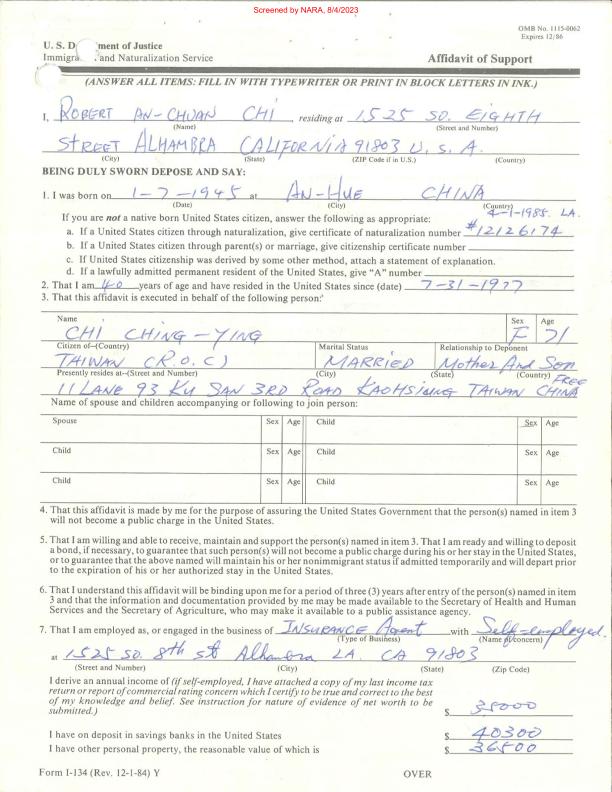 Screened by NARA, 8/4/2023
OMB No. 1115-0062
Expires 12/86
U. S. D ment of Justice
Immigra and Naturalization Service
Affidavit of Support
(ANSWER ALL ITEMS: FILL IN WITH TYPEWRITER OR PRINT IN BLOCK LETTERS IN INK.)
I, ROBERT AN-CHUAN CHI residing at 1525 SO. EIGHTH
(Name) (Street and Number)
STREET ALHAMBRA CALIFORNIA 91803 U. S. A.
(City) (State) (ZIP Code if in U.S.) (Country)
BEING DULY SWORN DEPOSE AND SAY:
1. I was born on 1-7-1945 at AN-HUE CHINA
(Date) (City) (Country)
4-1-1985. LA.
If you are not a native born United States citizen, answer the following as appropriate:
a. If a United States citizen through naturalization, give certificate of naturalization number #12126174
b. If a United States citizen through parent(s) or marriage, give citizenship certificate number
c. If United States citizenship was derived by some other method, attach a statement of explanation.
d. If a lawfully admitted permanent resident of the United States, give "A" number
2. That I am 40 years of age and have resided in the United States since (date) 7-31-1977
3. That this affidavit is executed in behalf of the following person:
Name Sex Age
CHI CHING-YING F 71
Citizen of-(Country) Marital Status Relationship to Deponent
TAIWAN (R.O.C) MARRIED Mother And Son
Presently resides at-(Street and Number) (City) (State) (Country) FREE
11 LANE 93 KU SAN 3RD ROAD KAOHSIUNG TAIWAN CHINA
Name of spouse and children accompanying or following to join person:
Spouse Sex Age Child Sex Age
Child Sex Age Child Sex Age
Child Sex Age Child Sex Age
4. That this affidavit is made by me for the purpose of assuring the United States Government that the person(s) named in item 3
will not become a public charge in the United States.
5. That I am willing and able to receive, maintain and support the person(s) named in item 3. That I am ready and willing to deposit
a bond, if necessary, to guarantee that such person(s) will not become a public charge during his or her stay in the United States,
or to guarantee that the above named will maintain his or her nonimmigrant status if admitted temporarily and will depart prior
to the expiration of his or her authorized stay in the United States.
6. That I understand this affidavit will be binding upon me for a period of three (3) years after entry of the person(s) named in item
3 and that the information and documentation provided by me may be made available to the Secretary of Health and Human
Services and the Secretary of Agriculture, who may make it available to a public assistance agency.
7. That I am employed as, or engaged in the business of INSURANCE Agent with Self-employed.
(Type of Business) (Name of concern)
at 1525 SO. 8th St Alhambra LA. CA 91803
(Street and Number) (City) (State) (Zip Code)
I derive an annual income of (if self-employed, I have attached a copy of my last income tax
return or report of commercial rating concern which I certify to be true and correct to the best
of my knowledge and belief. See instruction for nature of evidence of net worth to be
submitted.) $ 35000
I have on deposit in savings banks in the United States $ 40300
I have other personal property, the reasonable value of which is $ 36500
Form I-134 (Rev. 12-1-84) Y OVER